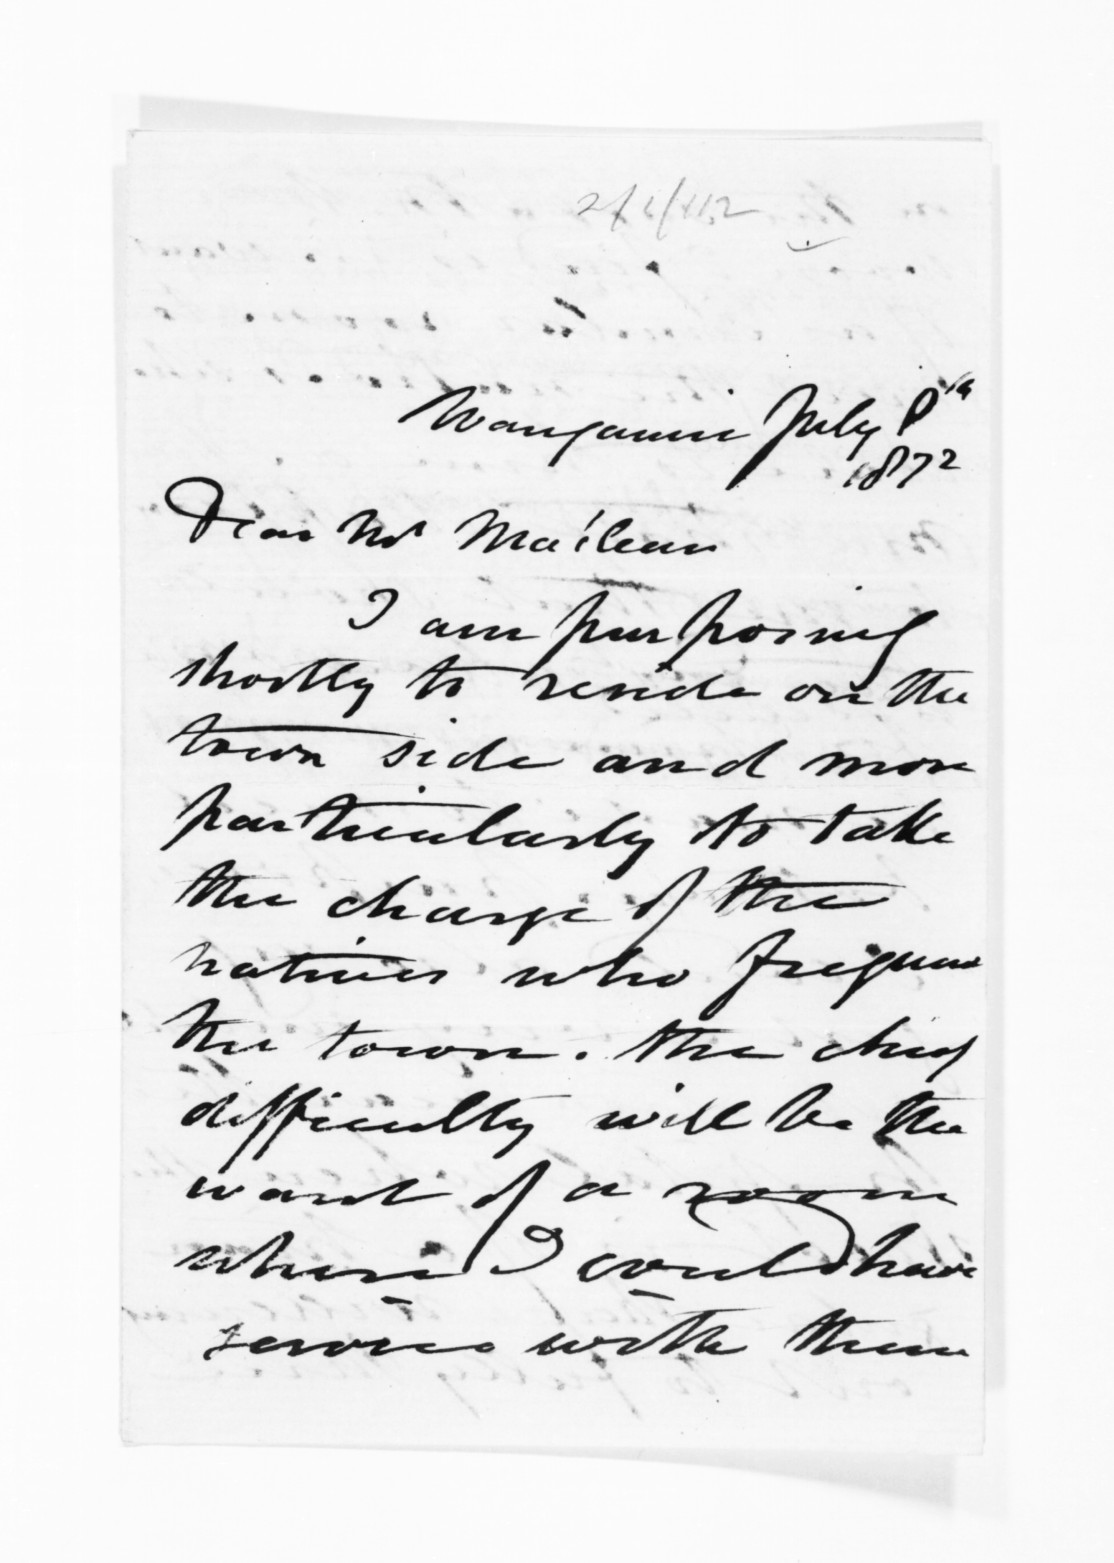 Wanganui July 8th
1872
Dear Mr McLean
I am purposing
shortly to reside on the
town side and more
particularly to take
the charge of the
natives who frequent
the town. The chief
difficulty will be the
want of a room
where I could have
service with them